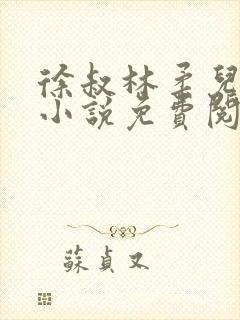 徐叔林柔兒
小說免費閱
蘇貞又